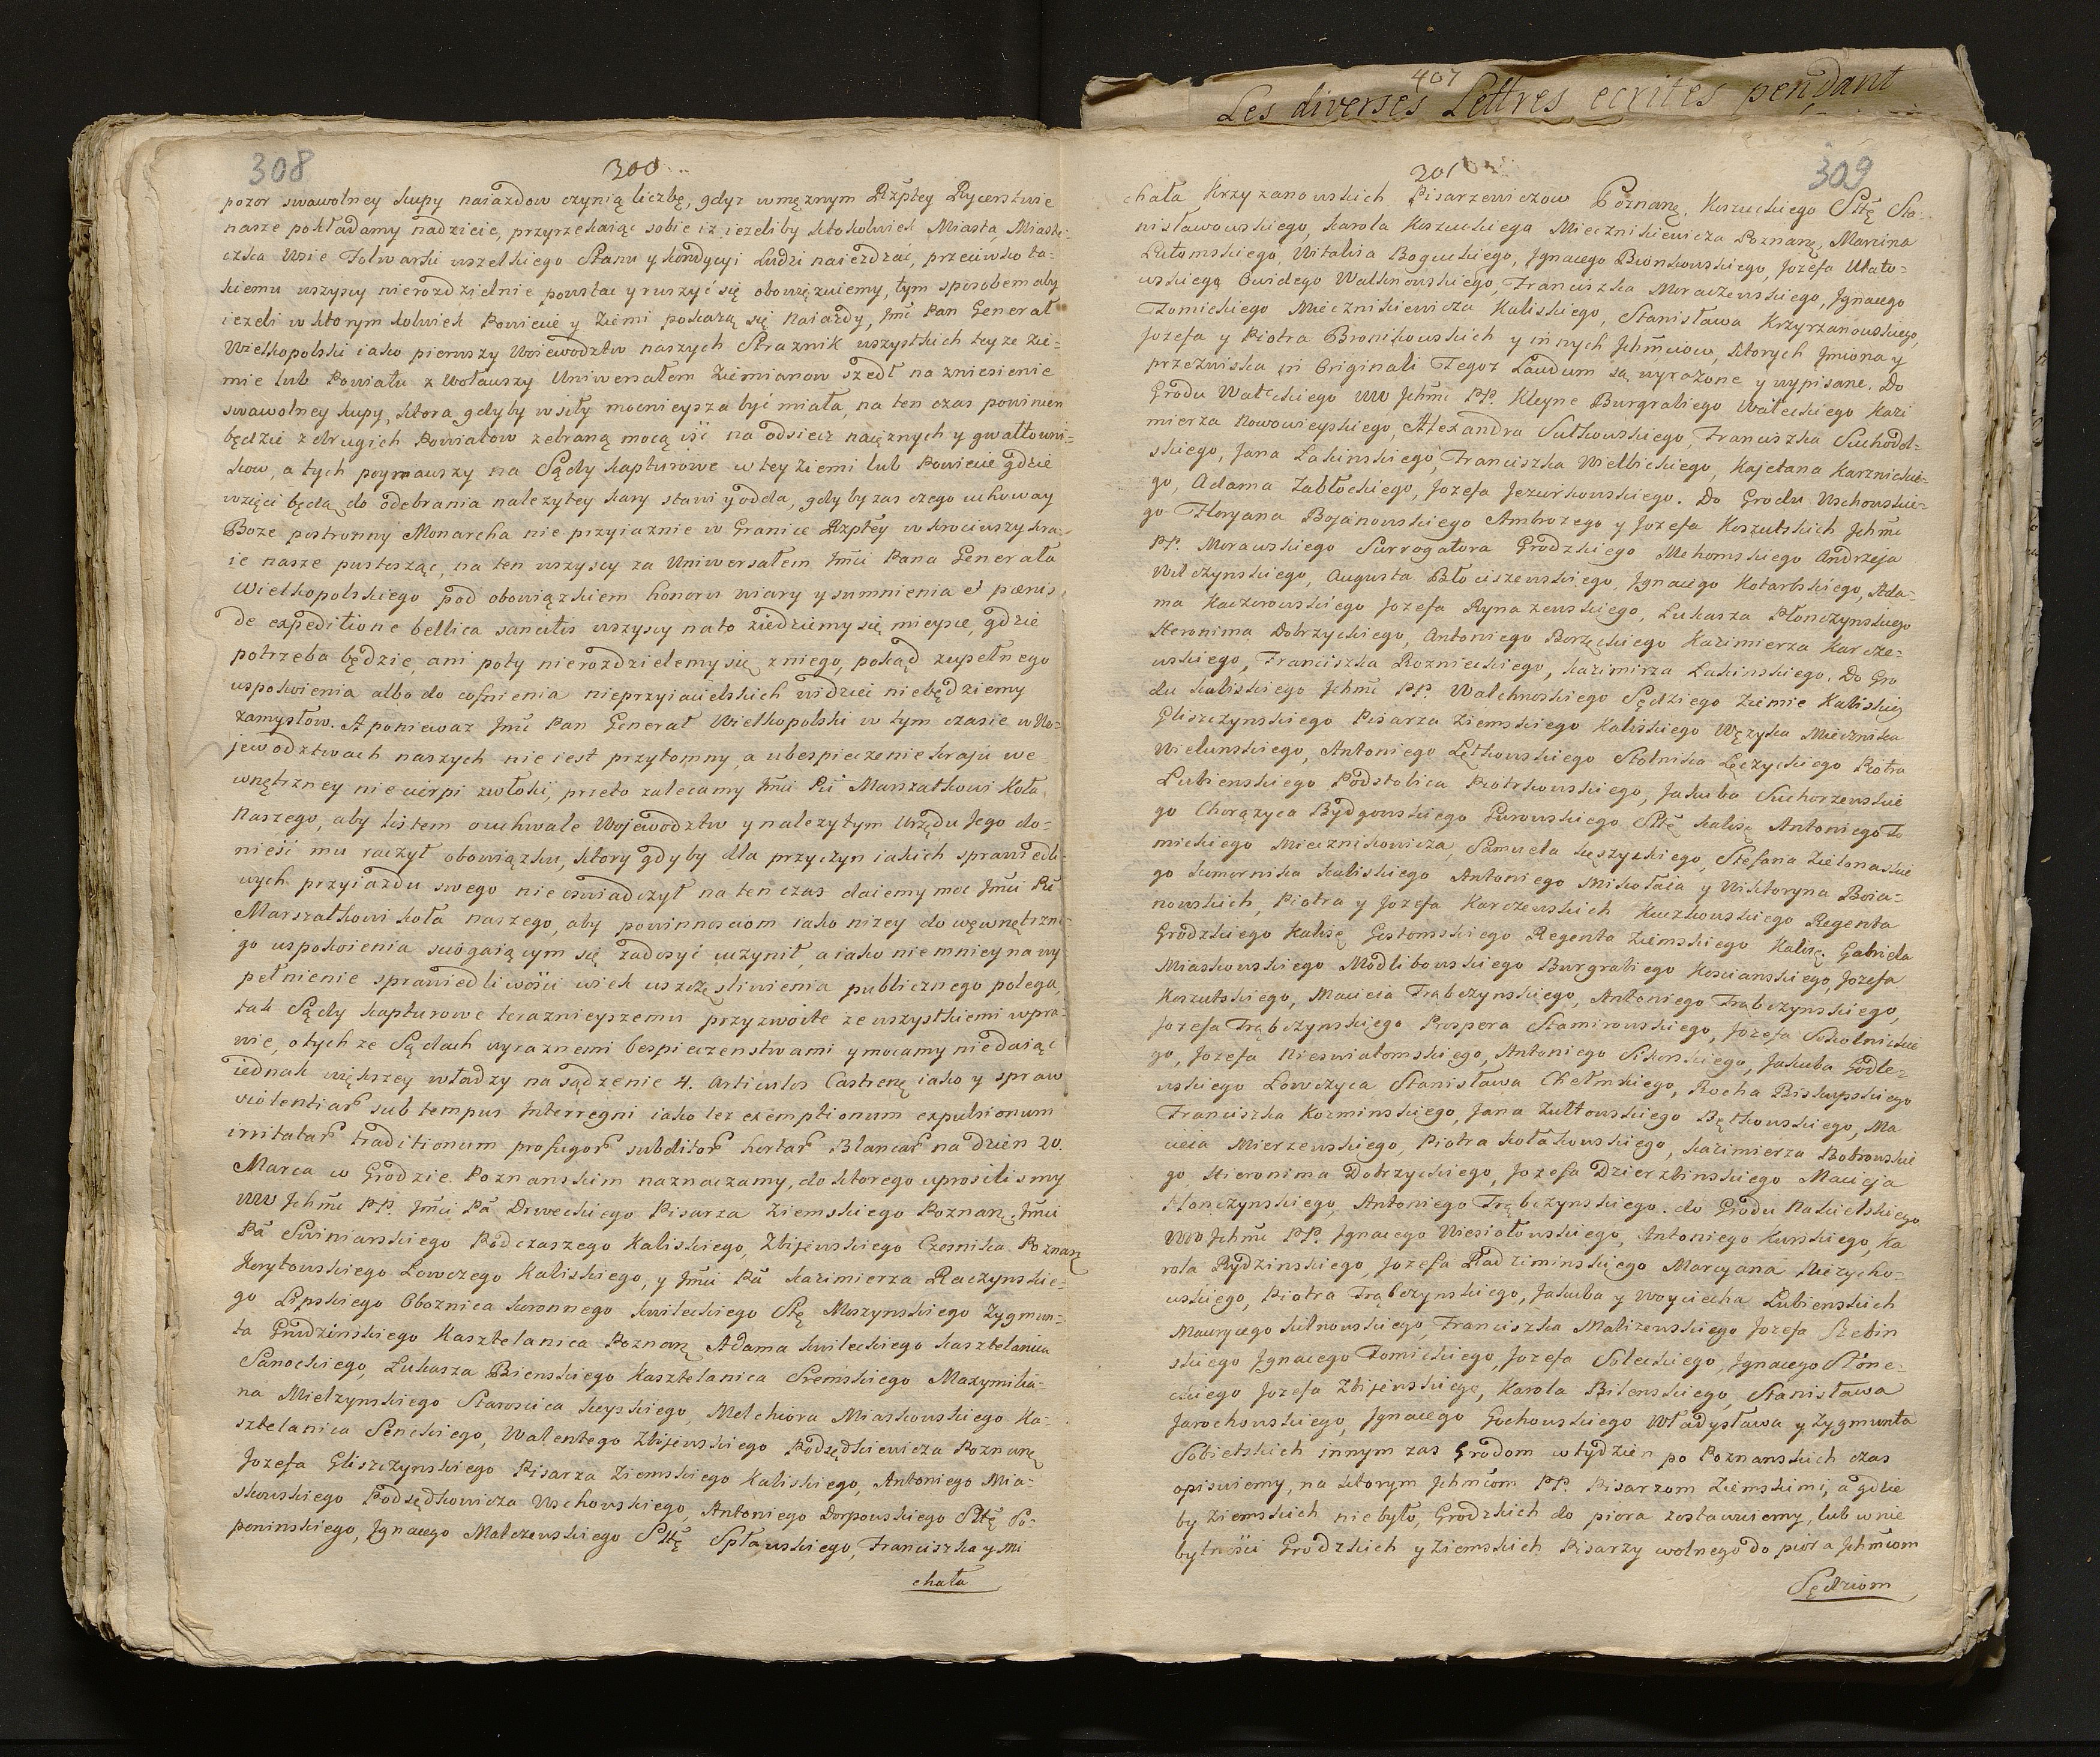 407
Les diverses Lettres ecrites pendant
308
300
pozor swawolney kupy naiazdow czynią liczbę, gdyz w męznym Rzpltey Rycerstwie
nasze pokładamy nadzieie, przyrzekaiąc sobie iz iezeliby ktokolwiek Miasta, Miaste-
czka Wsie Folwarki wszelkiego Stanu y kondycyi Ludzi naiezdzać, przeciwko ta-
kiemu wszyscy nierozdzielnie powstac y ruszyć się obowięzuiemy, tym sposobem aby
iezeli w ktorym kolwiek Powiecie y Ziemi pokazą się Naiazdy, Jmć Pan Generał
Wielkopolski iako pierwszy Woiewodztw naszych Straznik wszystkich teyze Zie-
mie lub Powiatu zwoławszy Uniwersałem Ziemianow szedł na zniesienie
swawolney kupy, ktora gdyby w siły mocnieysza być miała, na ten czas powinien
będzie z drugich Powiatow zebraną mocą iść na odsiecz naięznych y gwałtowni-
kow, a tych poymawszy na Sądy kapturowe w tey Ziemi lub Powiecie gdzie
wzięci będą do odebrania nalezytey kary stawi y odda, gdyby zas czego uchoway
Boze postronny Monarcha nie przyiaznie w Granice Rzpltey wkroczywszy kra-
ie nasze pustosząc, na ten wszyscy za Uniwersałem Jmci Pana Generała
Wielkopolskiego pod obowiązkiem honoru wiary y sumnienia et pœnis
de expeditione bellica sancitis wszyscy na to ziedziemy się mieysce, gdzie
potrzeba będzie, ani poty nierozdzielemy się z niego, pokąd zupełnego
uspokoienia albo do cofnienia nieprzyiacielskich widzieć niebędziemy
zamysłow. A poniewaz Jmć Pan Generał Wielkopolski w tym czasie w Wo-
jewodztwach naszych nie iest przytomny, a ubespieczenie kraju we-
wnętrzney nie cierpi zwłoki, przeto zalecamy Jmci Pu Marszałkowi Koła
Naszego, aby listem o uchwale Wojewodztw y nalezytym Urzędu Jego do-
nieść mu raczył obowiązku, ktory gdyby dla przyczyn iakich sprawiedli-
wych przyiazdu swego nie oswiadczył na ten czas daiemy moc Jmci Pu
Marszałkowi koła naszego, aby powinnosciom iako nizey do wewnętrzne-
go uspokoienia sciągaiącym się zadosyć uczynił, a iako nie mniey na wy
pełnienie sprawiedliwości wiek uszczęsliwienia publicznego polega,
tak Sądy kapturowe teraznieyszemu przyzwoite ze wszystkiemi w pra-
wie, o tych ze Sądach wyraznemi bespieczenstwami y mocamy niedaiąc
iednak większey władzy na sądzenie 4. Articulos Castren. iako y spraw
violentiar sub tempus Interregni iako tez exemptionum expulsionum
irritatar traditionum profugor subditor kartar Blancar na dzien 20.
Marca w Grodzie Poznanskim naznaczamy, do ktorego uprosilismy
WW Jchmć PP. Jmci Pa Drweckiego Pisarza Ziemskiego Poznan. Jmci
Pa Swiniarskiego Podczaszego Kaliskiego, Zbijewskiego Czesnika Poznan.
Korytowskiego Łowczego Kaliskiego, y Jmci Pa Kazimierza Raczynskie-
go Lipskiego Oboznica koronnego kwileckiego Stę Moszynskiego Zygmun-
ta Grudzinskiego Kasztelanica Poznan. Adama kwileckiego kasztelanica
Sanockiego, Łukasza Bienskiego Kasztelanica Sremskiego Maxymilia-
na Mielzynskiego Starościca kcyskiego, Melchiora Miaskowskiego Ka-
sztelanica Senckiego, Walentego Zbijewskiego Podsędkiewicza Poznan.
Jozefa Gliszczynskiego Pisarza Ziemskiego Kaliskiego, Antoniego Mia-
skowskiego Podsędkowicza Wschowskiego, Antoniego Dorpowskiego Sttę Po-
poninskiego, Jgnacego Malczewskiego Sttę Spławskiego, Franciszka y Mi
chała
301
309
chała Krzyzanowskich Pisarzewiczow Poznan. Koszuckiego Sttę Sta-
nisławowskiego, karola Koszuckiego Miecznikiewicza Poznan. Marcina
Lutomskiego, Witalisa Boguckiego, Jgnacego Bronikowskiego, Jozefa Ulato-
wskiego Owidego Walknowskiego, Franciszka Moraczewskiego, Jgnacego
Tomickiego Miecznikiewicza Kaliskiego, Stanisława Krzyrzanowskiego,
Jozefa y Piotra Bronikowskich y innych Jchmciow, ktorych Jmiona y
przezwiska in Originali Tegoz Laudum są wyrazone y wypisane. Do
Grodu Wałeckiego WW Jchmć PP. Kleyne Burgrabiego Wałeckiego Kazi
mierza Nowowieyskiego, Alexandra Sutkowskiego, Franciszka Suchodol-
skiego, Jana Łakinskiego, Franciszka Wielbickiego, Kajetana Karznickie-
go, Adama Zabłockiego, Jozefa Jezierkowskiego. Do Grodu Wschowskie-
go Floryana Bojanowskiego Ambrozego y Jozefa Koszutskich Jchmć
PP. Morawskiego Surrogatora Grodzkiego Mchomskiego Andrzeja
Wilczynskiego, Augusta Błociszewskiego, Jgnacego Kotarbskiego, Ada-
ma Kaczkowskiego Jozefa Rynazewskiego, Lukasza Płonczynskiego
Heronima Dobrzyckiego, Antoniego Borzęckiego Kazimierza Karcze-
wskiego, Franciszka Roznieckiego, kazimirza Łakinskiego. Do Gro
du kaliskiego Jchmć PP. Walchnoskiego Sędziego Ziemie Kaliskiej
Gliszczynskiego Pisarza Ziemskiego Kaliskiego Węzyka Miecznika
Wielunskiego, Antoniego Lętkowskiego Stolnika Lęczyckiego Piotra
Lubienskiego Podstolica Piotrkowskiego, Jakuba Suchorzewskie
go Chorązyca Bydgowskiego Gurowskiego Sttę Kalisę Antoniego To
mickiego Miecznikowicza, Samuela Kęszyckiego, Stefana Zielonackie
go komornika kaliskiego Antoniego Mikołaia y Wiktoryna Boia-
nowskich, Piotra y Jozefa Karczewskich Kuczkowskiego Regenta
Grodzkiego Kalisę Gostomskiego Regenta Ziemskiego Kalisę. Gabriela
Miaskowskiego Modlibowskiego Burgrabiego Koscianskiego, Jozefa
Koszutskiego, Macieia Trąbczynskiego, Antoniego Trąbczynskiego,
Jozefa Trąbczynskiego Prospera Stamirowskiego, Jozefa Sokolnickie
go, Jozefa Nieswiatomskiego, Antoniego Sikorskiego, Jakuba Godle-
wskiego Lowczyca Stanisława Chełmskiego, Rocha Biskupskiego
Franciszka Kozminskiego, Jana Zułtowskiego Bętkowskiego, Ma
cieia Mierzewskiego, Piotra kołakowskiego, Kazimierza Bobrowskie
go Hieronima Dobrzyckiego, Jozefa Dzierzbinskiego Macieja
Płonczynskiego, Antoniego Trąbczynskiego. do Grodu Nakielskiego
WW Jchmć PP. Jgnacego Wiesiołowskiego, Antoniego Kurskiego, Ka
rola Rydzinskiego, Jozefa Radziminskiego Marcyana Niezycho-
wskiego, Piotra Trąbczynskiego, Jakuba y Woyciecha Lubienskich
Maurycego kitnowskiego, Franciszka Malizewskiego Jozefa Szebin
skiego Jgnacego Tomickiego, Jozefa Soleckiego, Jgnacego Słone-
ckiego Jozefa Zbijewskiego, Karola Bilenskiego, Stanisława
Jarochowskiego, Jgnacego Gochowskiego Władysława y Zygmunta
Sobielskich innym zas Grodom w tydzien po Poznanskich czas
opisuiemy, na ktorym Jchmciom PP. Pisarzom Ziemskimi, a gdzie
by Ziemskich niebyło, Grodzkich do piora zostawuiemy, lub w nie
bytności Grodzkich y Ziemskich Pisarzy wolnego do piora Jchmciom
Sędziom